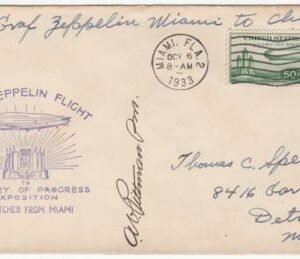 Graf Zeppelin Miami to Ch
MIAMI, FLA. 2
OCT 6
8-AM
1933
UNITED STATES
50
ZEPPELIN FLIGHT
TO
RY OF PROGRESS
EXPOSITION
TCHED FROM MIAMI
Pittman P.m.
Thomas C. Spe
8416
Det
M